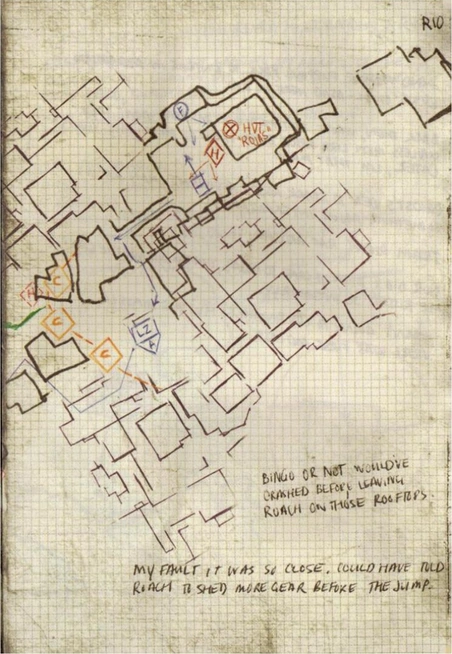 RIO
F
HVT:
"ROJAS"
H
C
C
C
BINGO OR NOT WOULD'VE
CRASHED BEFORE LEAVING
ROACH ON THOSE ROOFTOPS.
MY FAULT IT WAS SO CLOSE. COULD HAVE TOLD
ROACH TO SHED MORE GEAR BEFORE THE JUMP.